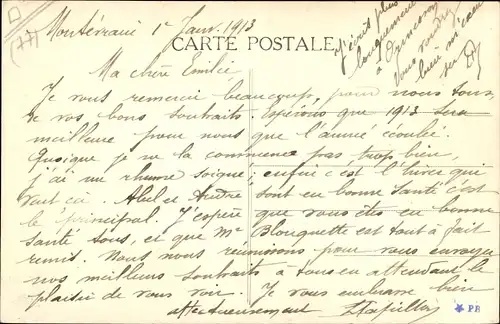 D
(77)
Montévrain 1r Janv. 1913
CARTE POSTALE
J'écrit plus
longuement
à
vous voudrez
bien m'excu
ser
Ma chère Emilie,
Je vous remercie beaucoup, pour nous tous
de vos bons souhaits. Espérons que 1913 sera
meilleure pour nous que l'année écoulée.
Quoique je ne la commence pas trop bien,
j'ai un rhume soigné ; enfin c'est l'hiver qui
veut ça. Abel et André sont en bonne santé c'est
le principal. J'espère que vous êtes en bonne
santé tous, et que Mr Blouquette est tout à fait
remis. Nous nous réunissons pour vous envoyer
nos meilleurs souhaits à tous en attendant le
plaisir de vous voir. Je vous embrasse bien
affectueusement
PB